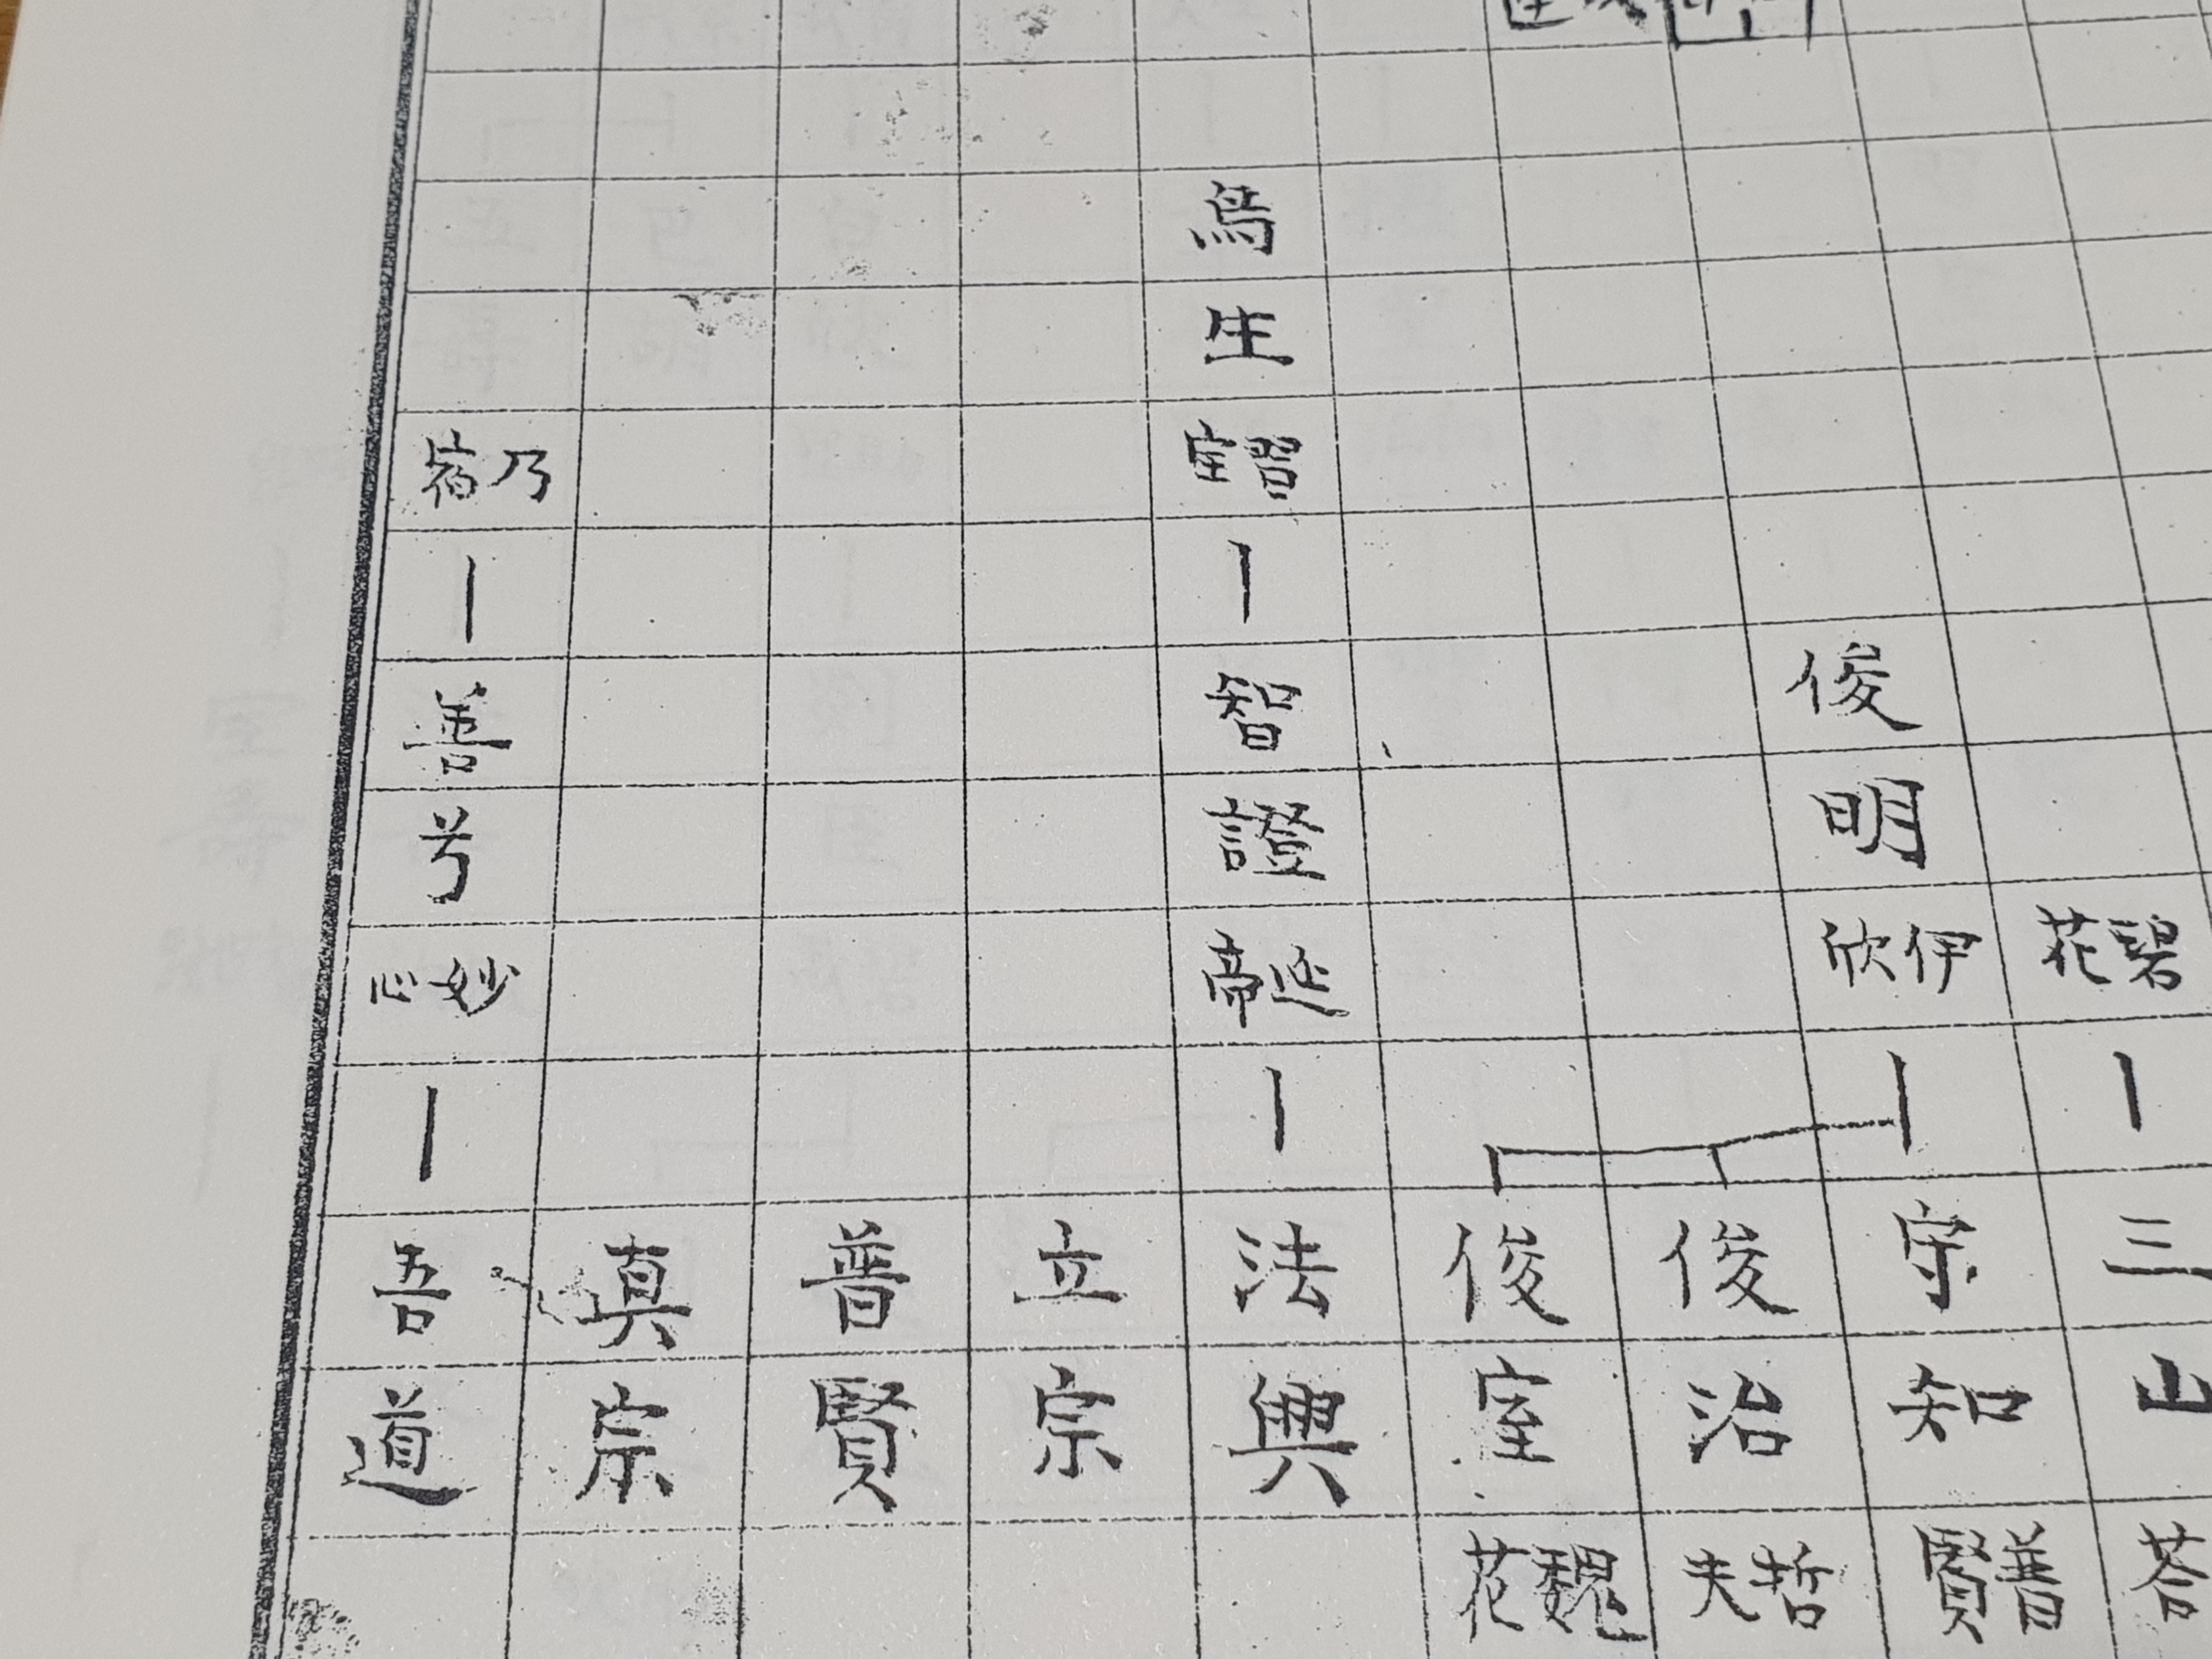 碧花三山荅
俊明伊欣宗知賢
俊治哲夫
俊室魏花
為生智證延帝法興
立宗
普賢
真宗
乃善兮妙心吾道